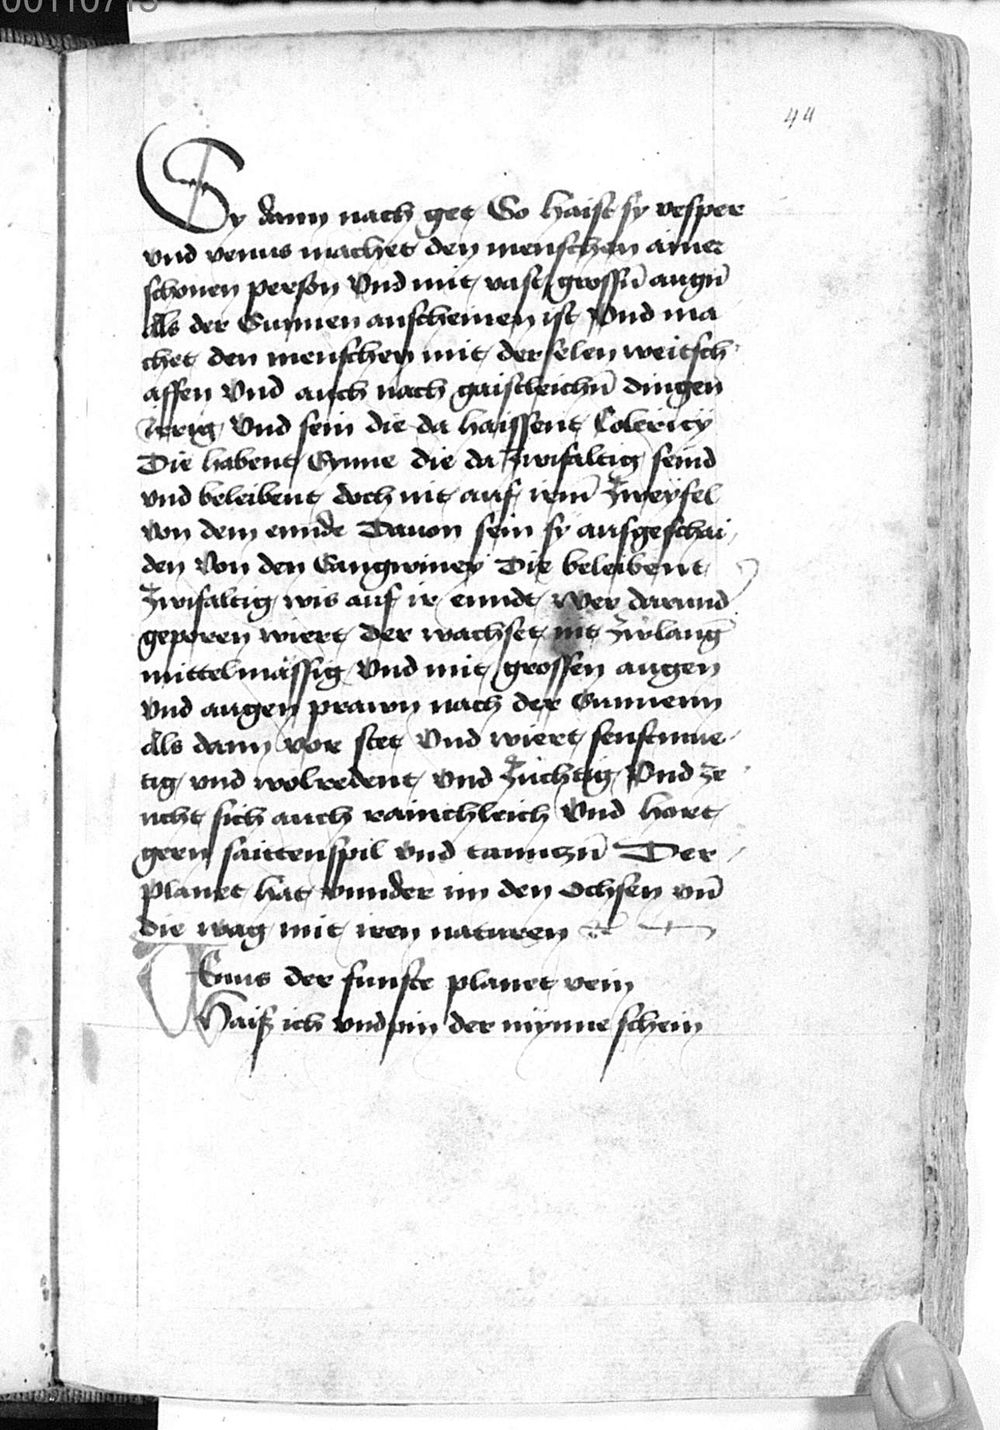 00110713
44
Sy dann nach get So haist sy vesper
vnd venus machet den menschen ainer
schonen person Vnd mit vast grossn̄ augn̄
Als der Sunnen anscheinen ist Vnd ma
chet den menschen mit der selen weitsch
affen Vnd auch nach gaistleichn̄ dingen
irrig Vnd sein die da haissent Colericy
Die habent Synne die da zwifaltig seind
vnd beleibent doch nit auf irm̄ zweyfel
von dem ennde Dauon sein sy ausgeschai
den Von den Sangwiney Die beleibent
zwifaltig wis auf ir enndt Wer darund̄
geporen wiert der wachset nit zwlang
mittelmässig Vnd mit grossen augen
vnd augen prawn nach der Sunnenn
Als dann vor stet Vnd wiert senftmue
tig vnd wolredent Vnd züchtig Vnd ze
ucht sich auch rainchleich Vnd hort
gern saittenspil vnd tanntzn̄ Der
planet hat wunder in den Ochsen vn̄
die wag mit iren naturen
Venus der funfte planet vein
Haiß ich vnd pin der mynne schein